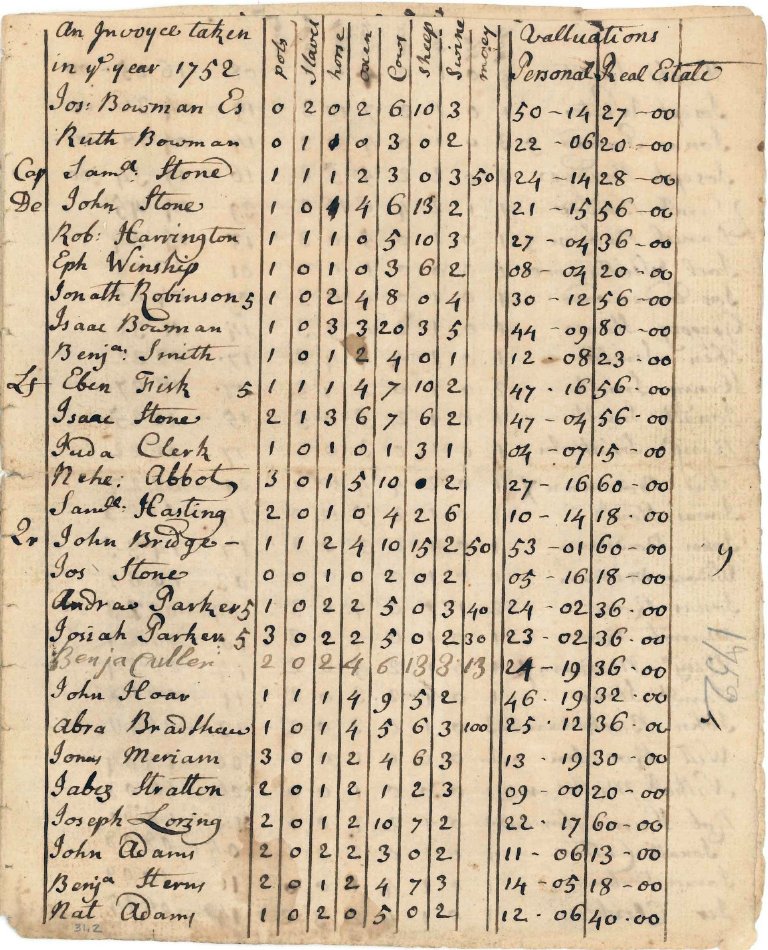 An Invoyce taken pols Slaves horse oxen Cows Sheep Swine money Valluations
in yᵉ year 1752 Personal Real Estate
Jos: Bowman Es 0 2 0 2 6 10 3 50-14 27-00
Ruth Bowman 0 1 0 3 0 2 22-06 20-00
Cap Samˡˡ Stone 1 1 1 2 3 0 3 50 24-14 28-00
De John Stone 1 0 4 6 13 2 21-15 56-00
Rob: Harrington 1 1 1 0 5 10 3 27-04 36-00
Eph Winship 1 0 1 0 3 6 2 08-04 20-00
Jonath Robinson 5 1 0 2 4 8 0 4 30-12 56-00
Isaac Bowman 1 0 3 3 20 3 5 44-09 80-00
Benjᵃ: Smith 1 0 1 2 4 0 1 12-08 23-00
Lt Eben Fisk 5 1 1 1 4 7 10 2 47-16 56-00
Isaac Stone 2 1 3 6 7 6 2 47-04 56-00
Juda Clerk 1 0 1 0 1 3 1 04-07 15-00
Nehe: Abbot 3 0 1 5 10 0 2 27-16 60-00
Samˡˡ: Hasting 2 0 1 0 4 2 6 10-14 18-00
Qr John Bridge - 1 1 2 4 10 15 2 50 53-01 60-00
Jos Stone 0 0 1 0 2 0 2 05-16 18-00
Andraw Parker 5 1 0 2 2 5 0 3 40 24-02 36-00
Josiah Parker 5 3 0 2 2 5 0 2 30 23-02 36-00
Benja Cutler 2 0 2 4 6 13 3 13 24-19 36-00
John Hoar 1 1 1 4 9 5 2 46-19 32-00
Abra Bradshaw 1 0 1 4 5 6 3 100 25-12 36-00
Jonas Meriam 3 0 1 2 4 6 3 13-19 30-00
Jabez Stratton 2 0 1 2 1 2 3 09-00 20-00
Joseph Loring 2 0 1 2 10 7 2 22-17 60-00
John Adams 2 0 2 2 3 0 2 11-06 13-00
Benjᵃ Sterns 2 0 1 2 4 7 3 14-05 18-00
Nat Adams 1 0 2 0 5 0 2 12-06 40-00
342
1752